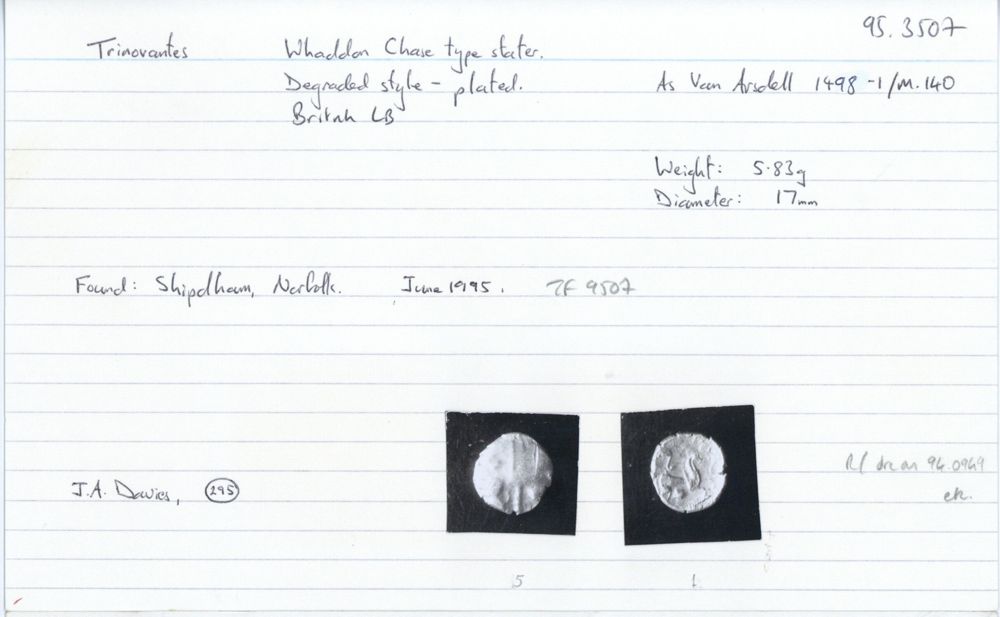 95.3507
Trinovantes Whaddon Chase type stater.
Degraded style - plated. As Van Arsdell 1498 -1/M.140
British LB
Weight: 5.83g
Diameter: 17mm
Found: Shipdham, Norfolk. June 1995. TF 9507
R/ die as 94.0949
J.A. Davies, 295
etc.
5 1